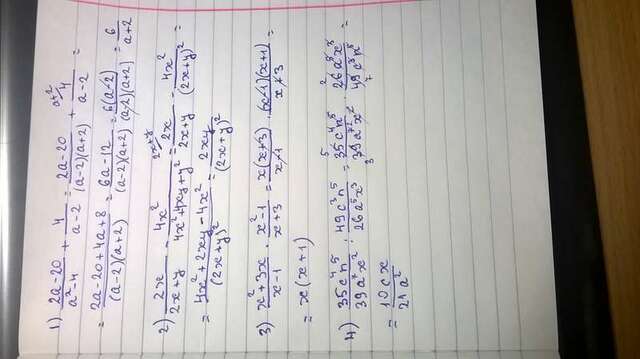 1) (2a-20)/(a²-4) + 4/(a-2) = (2a-20)/((a-2)(a+2)) + a+2/ 4/(a-2) =
= (2a-20+4a+8)/((a-2)(a+2)) = (6a-12)/((a-2)(a+2)) = 6(a-2)/((a-2)(a+2)) = 6/(a+2)
2) 2x/(2x+y) - 4x²/(4x²+4xy+y²) = 2x+y/ 2x/(2x+y) - 4x²/(2x+y)² =
= (4x²+2xy-4x²)/(2x+y)² = 2xy/(2x+y)²
3) (x²+3x)/(x-1) · (x²-1)/(x+3) = x(x+3)/(x-1) · (x-1)(x+1)/(x+3) =
= x(x+1)
4) 35c⁴n⁵/39a⁷x² : 49c³n⁵/26a⁵x³ = 5 35c⁴n⁵/3 39a⁷x² · 2 26a⁵x³/7 49c³n⁵ =
= 10cx/21a²